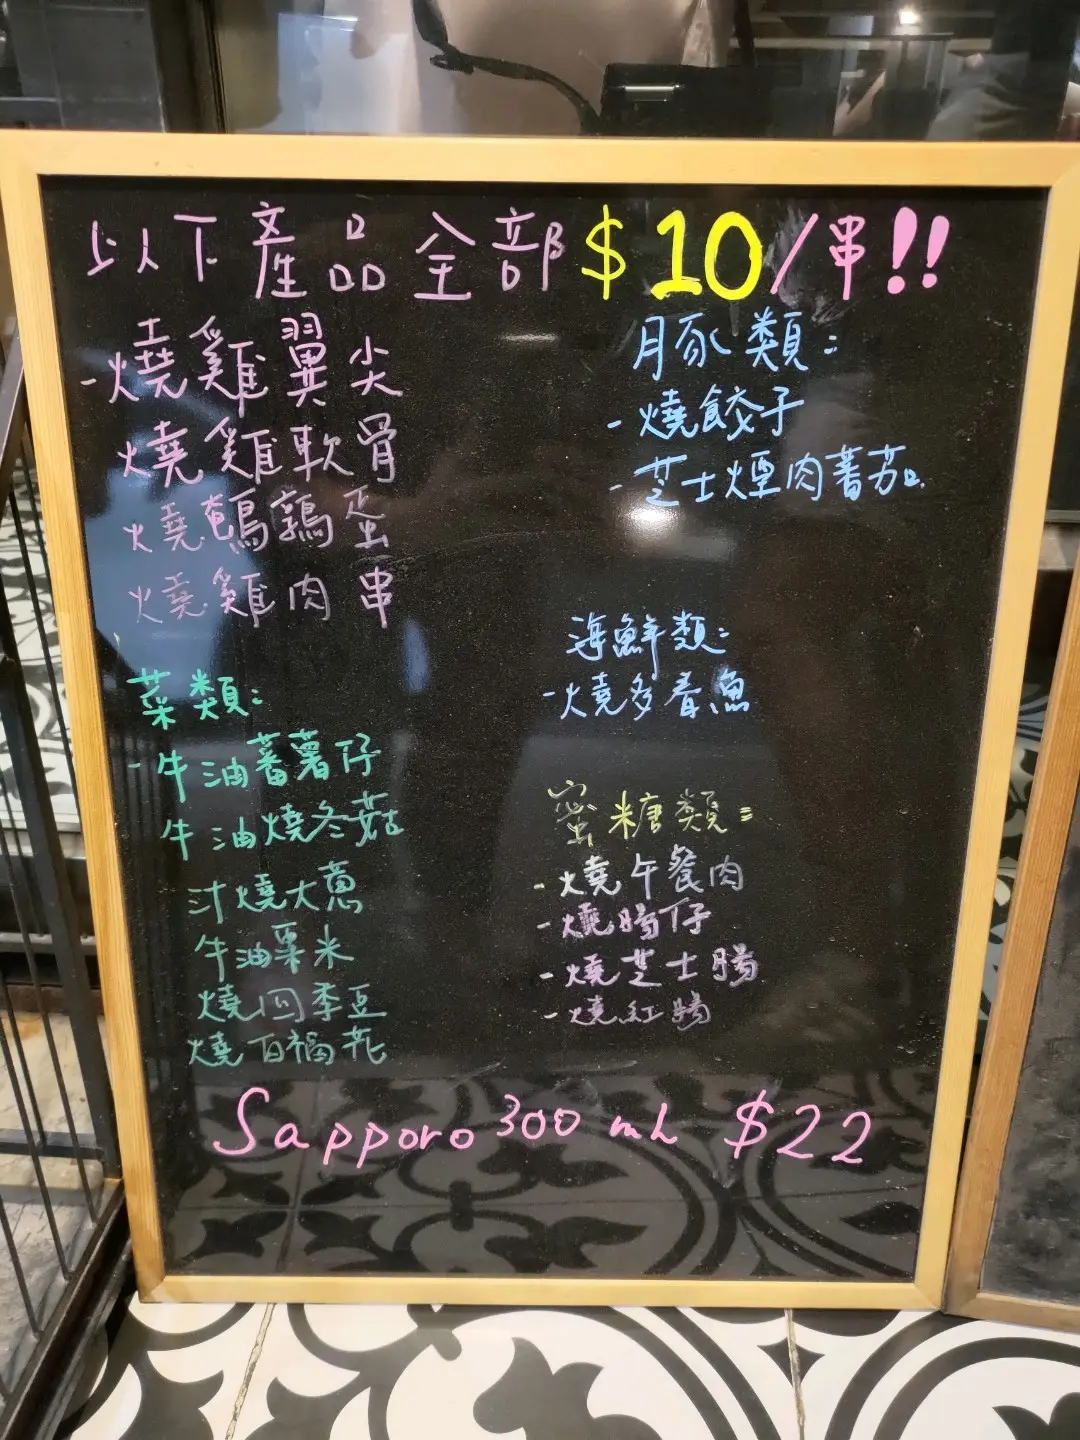 以下產品全部$10/串!!
-燒雞翼尖
燒雞軟骨
燒鵪鶉蛋
燒雞肉串
菜類:
-牛油蕃薯仔
牛油燒冬菇
汁燒大蔥
牛油粟米
燒四季豆
燒百福花
豚類:
-燒餃子
-芝士煙肉蕃茄
海鮮類:
-燒多春魚
蜜糖類:
-燒午餐肉
-燒腸仔
-燒芝士腸
-燒紅腸
Sapporo 300 ml $22